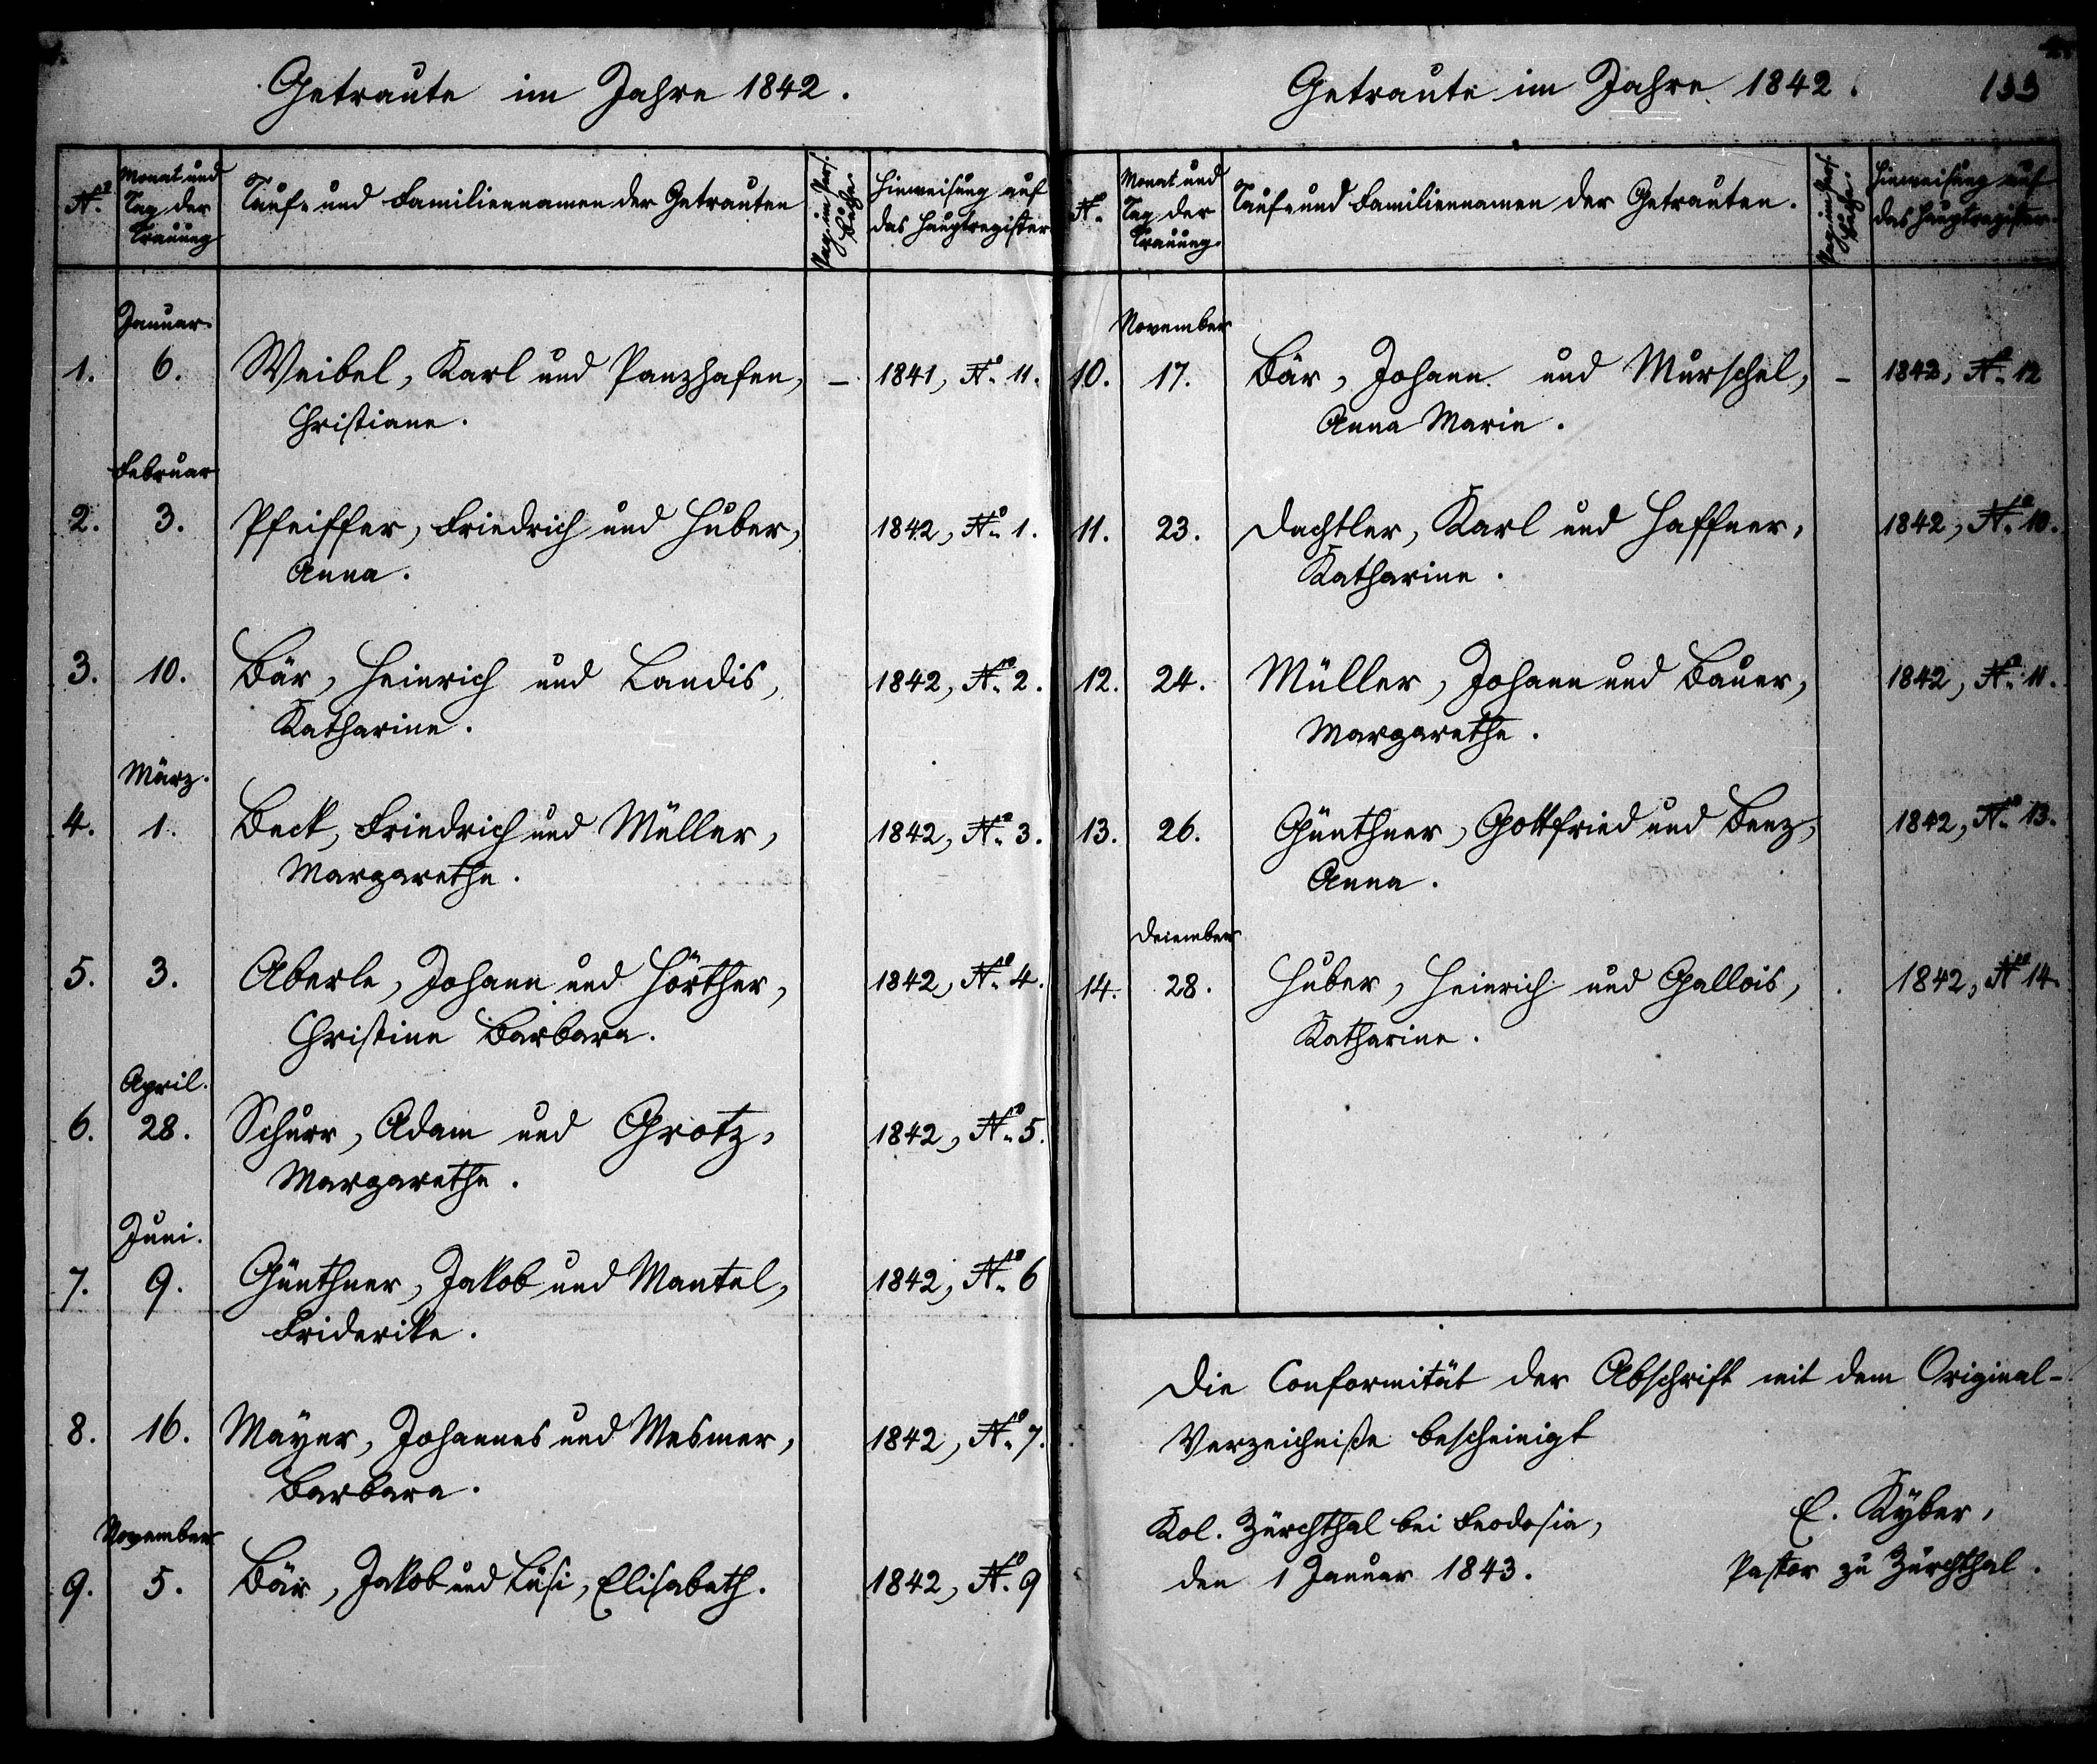 Getraute im Jahre 1842.
Nº
Monat und
Tag der
Trauung
Tauf- und Familiennamen der Getrauten
Pag. im Pers.
Buche.
Hinweisung auf
das Hauptregister
Januar.
1. 6. Weibel, Karl und Panzhafen, – 1841, Nº 11.
Christiane.
Februar
2. 3. Pfeiffer, Friedrich und Huber, 1842, Nº 1.
Anna.
3. 10. Bär, Heinrich und Landis, 1842, Nº 2.
Katharine.
März.
4. 1. Beck, Friedrich und Müller, 1842, Nº 3.
Margarethe.
5. 3. Aberle, Johann und Hörther, 1842, Nº 4.
Christine Barbara.
April.
6. 28. Schurr, Adam und Grotz, 1842, Nº 5.
Margarethe.
Juni.
7. 9. Günthner, Jakob und Mantel, 1842, Nº 6
Friderike.
8. 16. Mayer, Johannes und Mesmer, 1842, Nº 7.
Barbara.
November
9. 5. Bär, Jakob und Lüsi, Elisabeth. 1842, Nº 9
Getraute im Jahre 1842. 133
Nº
Monat und
Tag der
Trauung.
Tauf- und Familiennamen der Getrauten.
Pag. im Pers.
Buche.
Hinweisung auf
das Hauptregister.
November
10. 17. Bär, Johann und Murschel, – 1842, Nº 12
Anna Marie.
11. 23. Dachtler, Karl und Haffner, 1842, Nº 10.
Katharine.
12. 24. Müller, Johann und Bauer, 1842, Nº 11.
Margarethe.
13. 26. Günthner, Gottfried und Benz, 1842, Nº 13.
Anna.
December
14. 28. Huber, Heinrich und Gallois, 1842, Nº 14.
Katharine.
Die Conformität der Abschrift mit dem Original-
Verzeichniße bescheinigt
Kol. Zürchthal bei Feodosia,
den 1 Januar 1843.
E. Kyber,
Pastor zu Zürchthal.